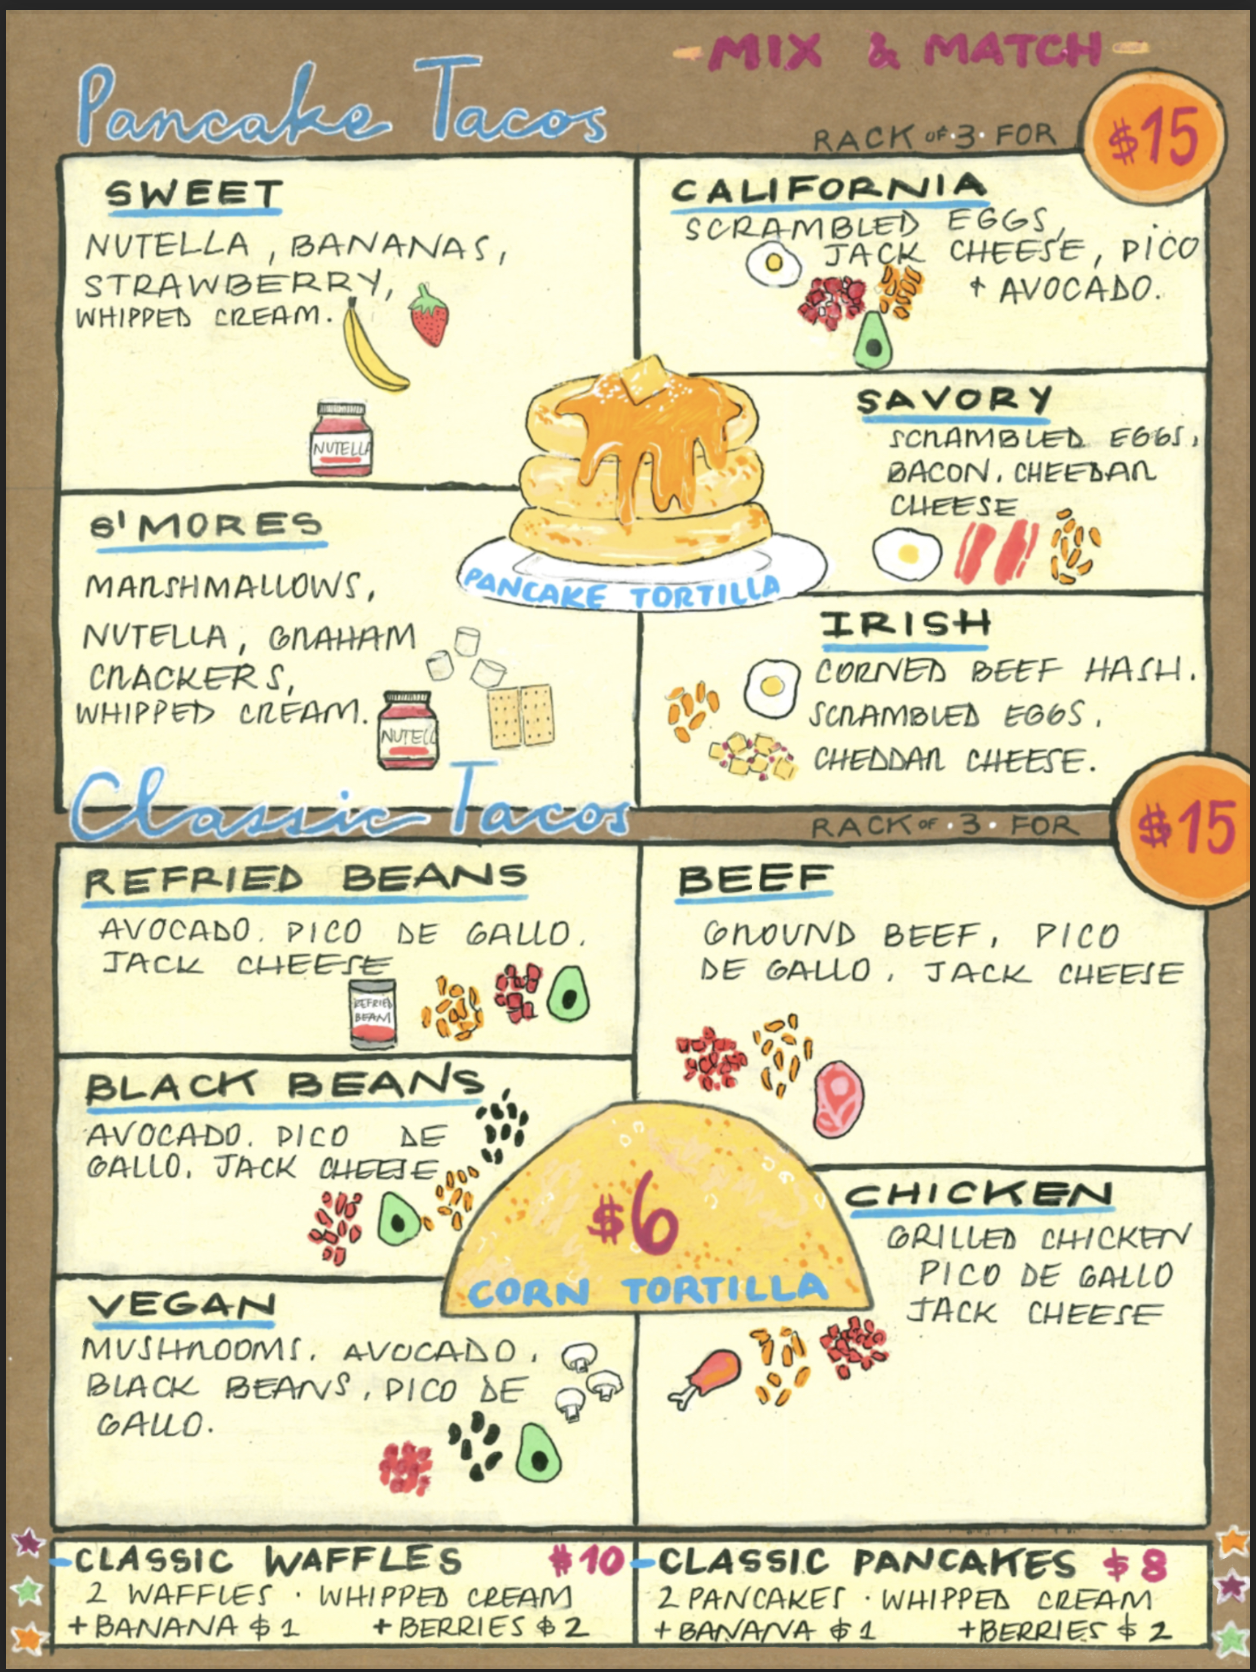 - MIX & MATCH -
Pancake Tacos
RACK OF · 3 · FOR
$15
SWEET
NUTELLA, BANANAS,
STRAWBERRY,
WHIPPED CREAM.
NUTELLA
CALIFORNIA
SCRAMBLED EGGS,
JACK CHEESE, PICO
+ AVOCADO.
SAVORY
SCRAMBLED EGGS,
BACON, CHEDDAR
CHEESE
S'MORES
MARSHMALLOWS,
NUTELLA, GRAHAM
CRACKERS,
WHIPPED CREAM.
NUTELL
PANCAKE TORTILLA
IRISH
CORNED BEEF HASH.
SCRAMBLED EGGS,
CHEDDAR CHEESE.
Classic Tacos
RACK OF · 3 · FOR
$15
REFRIED BEANS
AVOCADO. PICO DE GALLO.
JACK CHEESE
REFRIED
BEAN
BEEF
GROUND BEEF, PICO
DE GALLO, JACK CHEESE
BLACK BEANS
AVOCADO. PICO DE
GALLO. JACK CHEESE
$6
CORN TORTILLA
CHICKEN
GRILLED CHICKEN
PICO DE GALLO
JACK CHEESE
VEGAN
MUSHROOMS. AVOCADO,
BLACK BEANS, PICO DE
GALLO.
-CLASSIC WAFFLES $10
2 WAFFLES · WHIPPED CREAM
+BANANA $1 +BERRIES $2
-CLASSIC PANCAKES $8
2 PANCAKES · WHIPPED CREAM
+BANANA $1 +BERRIES $2